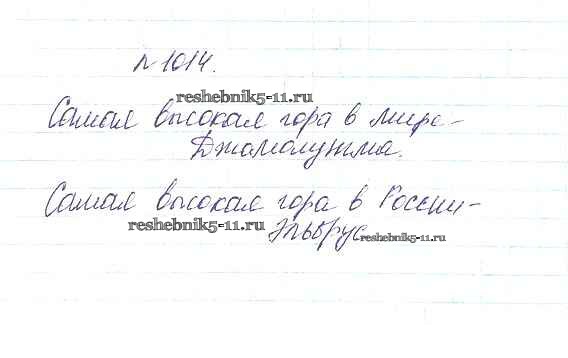 № 1014.
reshebnik5-11.ru
Самая высокая гора в мире-
Джомолунгма.
Самая высокая гора в России-
reshebnik5-11.ru
Эльбрус
reshebnik5-11.ru